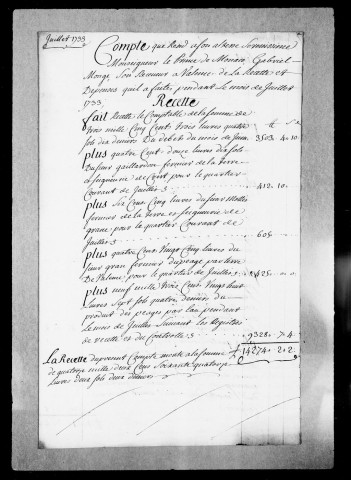 Juillet 1733
Compte que Rend a son altesse Serenissime
Monseigneur le Prince de Monaco, Gabriel
Monge, son Receveur a Valence de la Recette et
Depences quil a faite, pendant Le mois de Juillet
1733.
Recette
fait Recette le Comptable de la somme de
trois mille Cinq Cent trois livres quatre
sols dix deniers Du debet du mois de Juin 3503 4 10
plus quatre Cent douze livres dix sols
Du sieur gaillardon fermier de la terre
et seigneurie de pour le quartier
Courant de Juillet 412 10
plus Six Cens Cinq livres du sieur
fermier de la terre et seigneurie de
pour le quartier Courant de
Juillet 605
plus quatre Cens Vingt Cinq livres du
sieur gran fermier du peage par terre
De Valence pour le quartier de Juillet 425
plus neuf mille trois Cens Vingt huit
livres Sept sols quatre deniers du
produit des peages par eau pendant
le mois de Juillet Suivant les Registres
de recette et du Controlle 9328 7 4
La Recette du present Compte monte a la somme 14274 2 2
de quatorze mille deux Cens Soixante quatorze
livres deux sols deux deniers